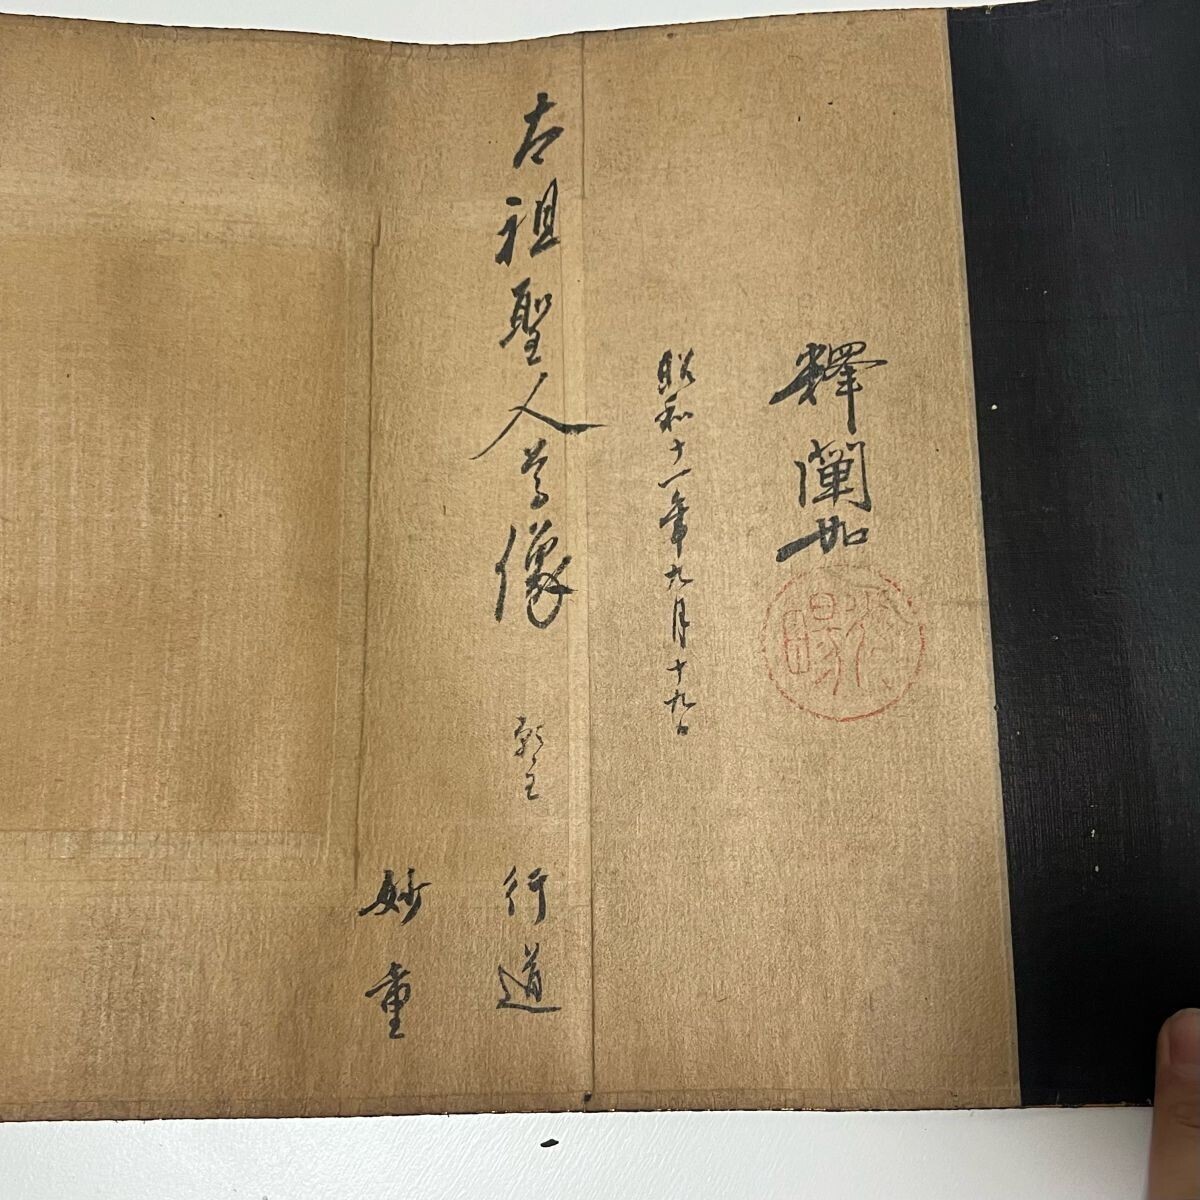 釋闡如
光暢
昭和十一年九月十九日
太祖聖人尊像
願主
行道
妙重